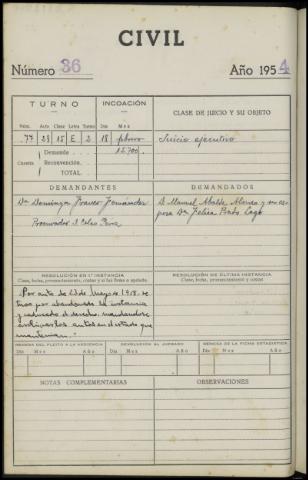 CIVIL
Número 36 Año 1954
TURNO INCOACIÓN CLASE DE JUICIO Y SU OBJETO
Núm. Acto Clase Letra Turno Día Mes
77 23 15 E 2 18 febrero Juicio ejecutivo
Cuantía Demanda 12.700
Reconvención
TOTAL
DEMANDANTES DEMANDADOS
Dª Dominga Franco Fernández D. Manuel Abalde Alonso y su es-
Procurador S. Colao posa Dª Felisa Prado Lago
RESOLUCIÓN EN 1ª INSTANCIA RESOLUCIÓN DE ÚLTIMA INSTANCIA
Clase, fecha, pronunciamiento, costas y si fué firme o apelada. Clase, fecha, pronunciamiento y costas
Por auto de 23 de Mayo de 1958. se
tuvo por abandonada la instancia
y caducado el derecho. mandandose
archivar los autos en el estado que
mantienen.
REMESA DEL PLEITO A LA AUDIENCIA DEVOLUCIÓN AL JUZGADO REMESA DE LA FICHA ESTADÍSTICA
Día Mes Año Día Mes Año Día Mes Año
NOTAS COMPLEMENTARIAS OBSERVACIONES